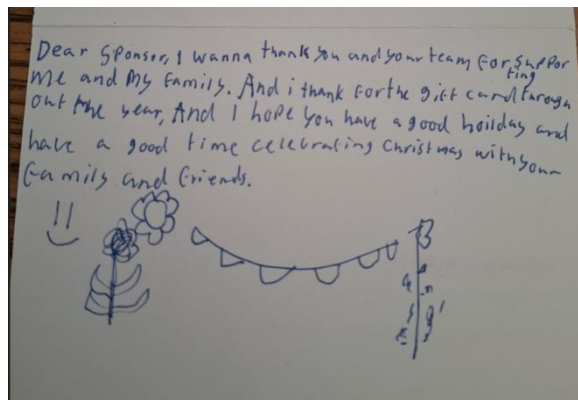 Dear Sponsor, I wanna thank you and your team for suppor
ting
me and my family. And i thank for the gift card through
out the year, And I hope you have a good hoilday and
have a good time celebrating Christmas with your
family and friends.